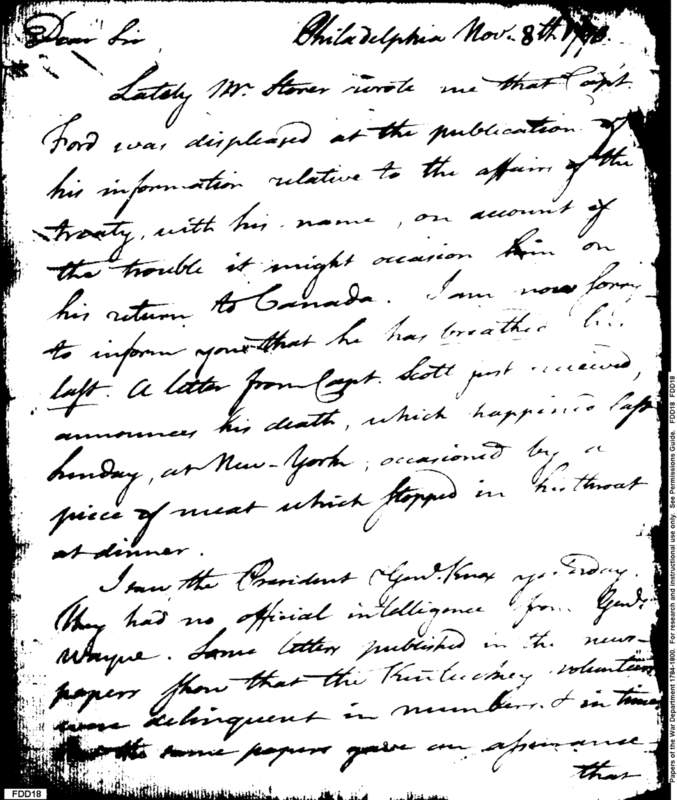 Dear Sir Philadelphia Nov. 8th 1793.
Lately Mr. Storer wrote me that Capt.
Ford was displeased at the publication of
his information relative to the affairs of the
treaty, with his name, on account of
the trouble it might occasion him on
his return to Canada. I am now sorry
to inform you that he has breathed his
last. A letter from Capt. Scott just received,
announces his death, which happened last
Sunday, at New-York, occasioned by a
piece of meat which stopped in his throat
at dinner.
I saw the President & Genl. Knox yesterday.
They had no official intelligence from Genl.
Wayne. Some letters published in the news-
papers shew that the Kentuckey volunteers
were delinquent in numbers & in time
the same papers gave an assurance
that
FDD18
Papers of the War Department 1784-1800. For research and instructional use only. See Permissions Guide. FDD18 FDD18